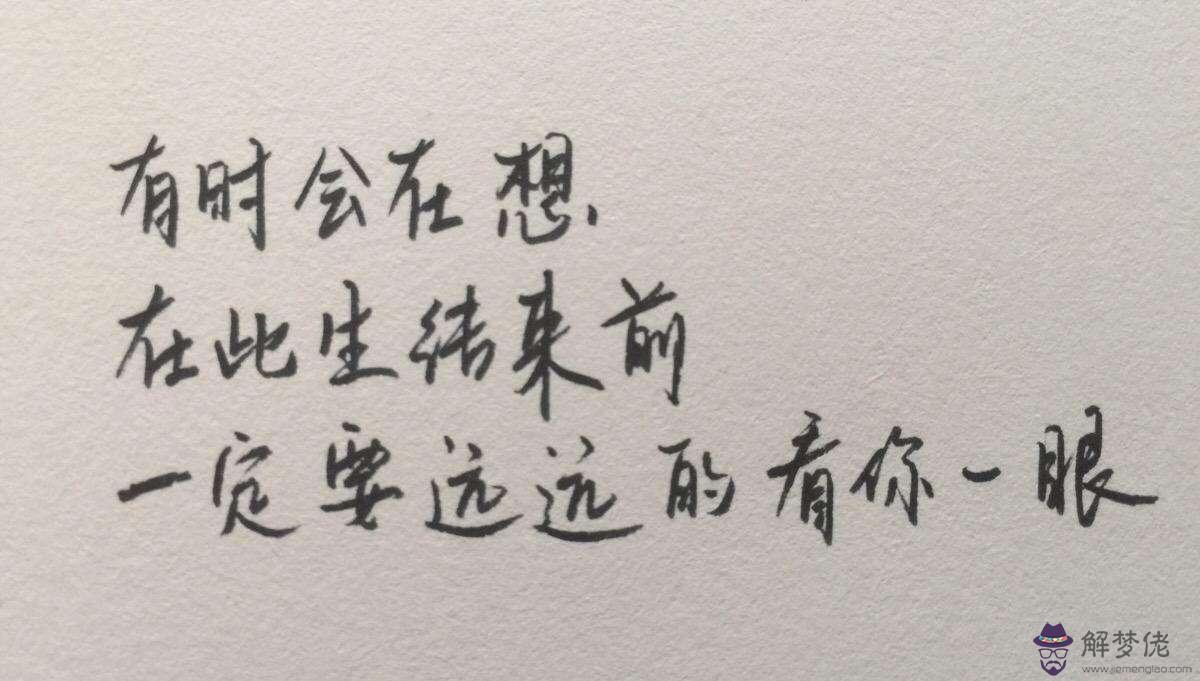 有时会在想、
在此生结束前
一定要远远的看你一眼
解梦佬
www.jiemenglao.com